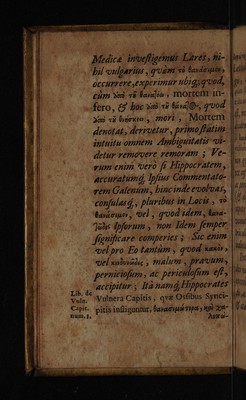 Medicæ investigemus Lares, ni-
hil vulgarius, qvàm τὸ θανάσιμον,
occurrere, experimur ubiq;, qvod,
cùm ἀπὸ τοῦ θανατόω, mortem in-
fero, & hoc ἀπὸ τοῦ θάνατος, qvod
ἀπὸ τοῦ θνήσκω, mori, Mortem
denotat, derivetur, primo statim
intuitu omnem Ambiguitatis vi-
detur removere remoram; Ve-
rum enim verò si Hippocratem,
accuratumq́;, Ipsius Commentato-
rem Galenum, hinc inde evolvas,
consulasq́;, pluribus in Locis, τὸ
θανάσιμον, vel, qvod idem,
Ipsorum, non Idem semper
significare comperies; Sic enim
vel pro Eo tantùm, qvod κακὸν,
vel malum, pravum,
perniciosum, ac periculosum est,
accipitur; Ità namq́; Hippocrates
Lib. de Vulnera Capitis, qvæ Ossibus Synci-
Vuln.
Capit. pitis infliguntur, θανασιμώτερα, καὶ χα-
num. 3.
λεπώ-